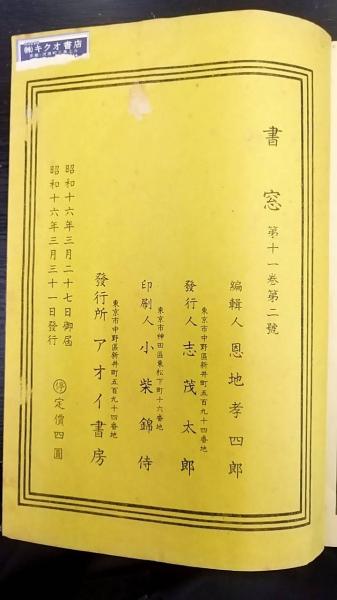 ㈱キクオ書店
書窓 第十一巻第二號
編輯人 恩地孝四郎
東京市中野區新井町五百九十四番地
發行人 志茂太郎
東京市神田區東松下町十六番地
印刷人 小柴錦侍
東京市中野區新井町五百九十四番地
發行所 アオイ書房
昭和十六年三月二十七日御屆
昭和十六年三月三十一日發行
停 定價四圓